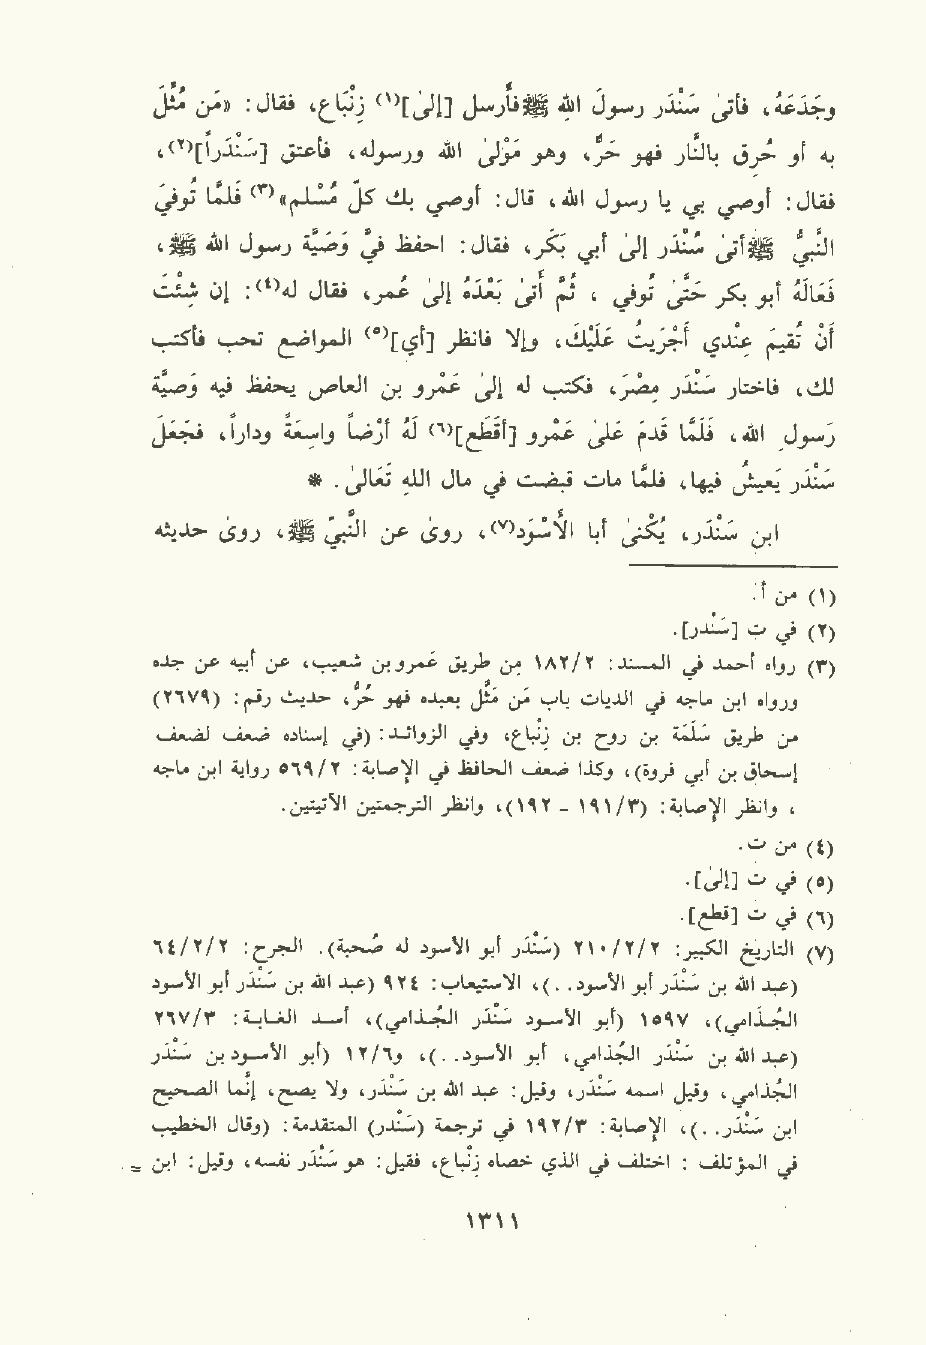 وجَدَعَهُ، فأتىٰ سَنْدَر رسولَ الله ﷺ فأَرسل [إلىٰ](١) زِنْبَاع، فقال: «مَن مُثِّلَ
به أو حُرِق بالنَّار فهو حَرٌّ، وهو مَوْلىٰ الله ورسوله، فأعتق [سَنْدَراً](٢)،
فقال: أوصي بي يا رسول الله، قال: أوصي بك كلّ مُسْلم»(٣) فلَمَّا تُوفيَ
النَّبيّ ﷺ أتىٰ سَنْدر إلىٰ أبي بَكْر، فقال: احفظ فيَّ وَصيَّة رسول الله ﷺ،
فَعَالَهُ أبو بكر حَتَّىٰ تُوفي ، ثُمّ أتىٰ بَعْدَهُ إلىٰ عُمر، فقال له(٤): إن شِئْتَ
أنْ تُقيمَ عِنْدي أجْرَيتُ عَلَيْكَ، وإلا فانظر [أي](٥) المواضع تحب فأكتب
لك، فاختار سَنْدر مِصْرَ، فكتب له إلىٰ عَمْرو بن العاص يحفظ فيه وَصيَّة
رسولِ الله، فَلَمَّا قَدمَ علىٰ عَمْرو [أقَطَعَ](٦) لَهُ أرْضاً واسَعَةً وداراً، فجَعَلَ
سَنْدَر يَعيشُ فيها، فلمَّا مات قبضت في مال اللهِ تَعَالىٰ. *
ابن سَنْدَر، يُكْنىٰ أبا الأسْوَد(٧)، روىٰ عن النَّبيّ ﷺ، روىٰ حديثه
(١) من أ.
(٢) في ت [سَنْدر].
(٣) رواه أحمد في المسند: ١٨٢/٢ من طريق عَمروبن شعيب، عن أبيه عن جده
ورواه ابن ماجه في الديات باب مَن مثَّل بعبده فهو حُرّ، حديث رقم: (٢٦٧٩)
من طريق سَلَمَة بن روح بن زِنْباع، وفي الزوائد: (في إسناده ضعف لضعف
إسحاق بن أبي فروة)، وكذا ضعف الحافظ في الإصابة: ٥٦٩/٢ رواية ابن ماجه
، وانظر الإصابة: (١٩١/٣ - ١٩٢)، وانظر الترجمتين الأتيتين.
(٤) من ت.
(٥) في ت [إلىٰ].
(٦) في ت [قطع].
(٧) التاريخ الكبير: ٢١٠/٢/٢ (سَنْدَر أبو الأسود له صُحبة). الجرح: ٦٤/٢/٢
(عبد الله بن سَنْدَر أبو الأسود. .)، الاستيعاب: ٩٢٤ (عبد الله بن سَنْدَر أبو الأسود
الجُذامي)، ١٥٩٧ (أبو الأسود سَنْدَر الجُذامي)، أسد الغابة: ٢٦٧/٣
(عبد الله بن سَنْدَر الجُذامي، أبو الأسود. .)، و١٢/٦ (أبو الأسودبن سَنْدَر
الجُذامي، وقيل اسمه سَنْدَر، وقيل: عبد الله بن سَنْدَر، ولا يصح، إنَّما الصحيح
ابن سَنْدَر. .)، الإصابة: ١٩٢/٣ في ترجمة (سَنْدَر) المتقدمة: (وقال الخطيب
في المؤتلف : اختلف في الذي خصاه زِنْباع، فقيل: هو سَنْدَر نفسه، وقيل: ابن =
١٣١١